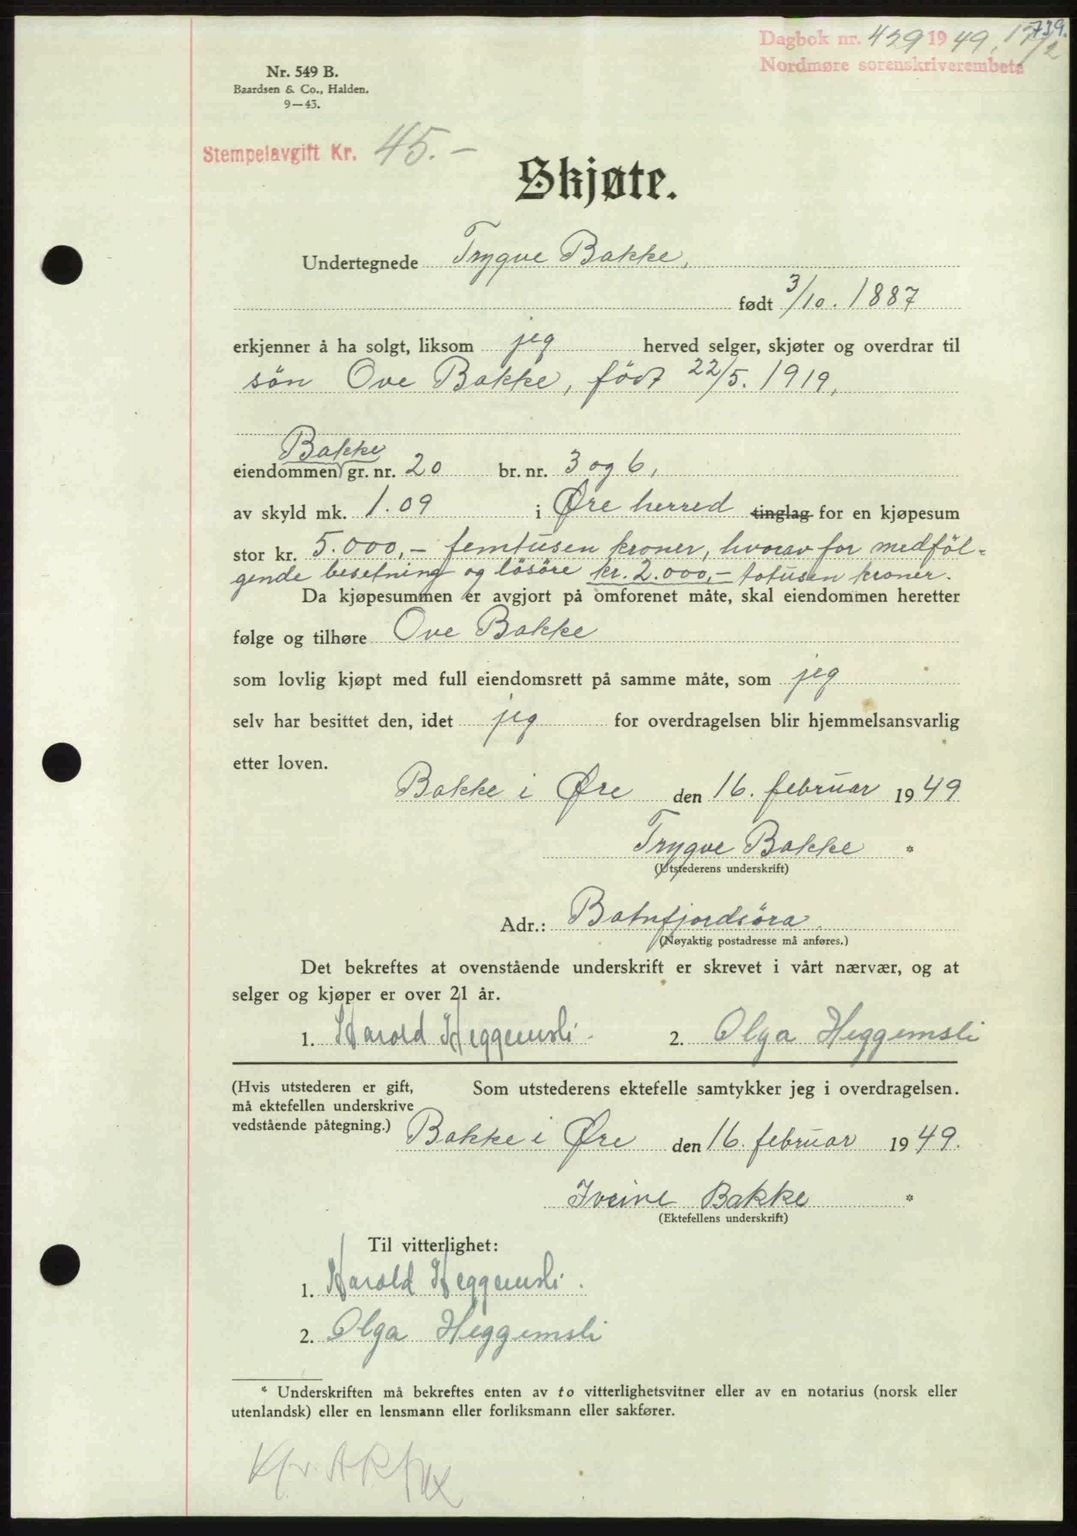 739.
Dagbok nr. 439 1949. 17/2
Nordmøre sorenskriverembete
Nr. 549 B.
Baardsen & Co., Halden.
9—43.
Stempelavgift Kr. 45.—
Skjøte.
Undertegnede Trygve Bakke,
født 3/10. 1887
erkjenner å ha solgt, liksom jeg herved selger, skjøter og overdrar til
søn Ove Bakke, født 22/5. 1919,
Bakke
eiendommen gr. nr. 20 br. nr. 3 og 6,
av skyld mk. 1.09 i Øre herred tinglag for en kjøpesum
stor kr. 5.000,- femtusen kroner, hvorav for medföl-
gende besetning og lösöre kr. 2.000,- totusen kroner.
Da kjøpesummen er avgjort på omforenet måte, skal eiendommen heretter
følge og tilhøre Ove Bakke
som lovlig kjøpt med full eiendomsrett på samme måte, som jeg
selv har besittet den, idet jeg for overdragelsen blir hjemmelsansvarlig
etter loven.
Bakke i Øre den 16. februar 1949
Trygve Bakke *
(Utstederens underskrift)
Adr.: Batnfjordsöra.
(Nøyaktig postadresse må anføres.)
Det bekreftes at ovenstående underskrift er skrevet i vårt nærvær, og at
selger og kjøper er over 21 år.
1. Harald Heggemsli. 2. Olga Heggemsli
(Hvis utstederen er gift, Som utstederens ektefelle samtykker jeg i overdragelsen.
må ektefellen underskrive
vedstående påtegning.) Bakke i Øre den 16. februar 1949.
Iverine Bakke *
(Ektefellens underskrift)
Til vitterlighet:
1. Harald Heggemsli.
2. Olga Heggemsli
* Underskriften må bekreftes enten av to vitterlighetsvitner eller av en notarius (norsk eller
utenlandsk) eller en lensmann eller forliksmann eller sakfører.